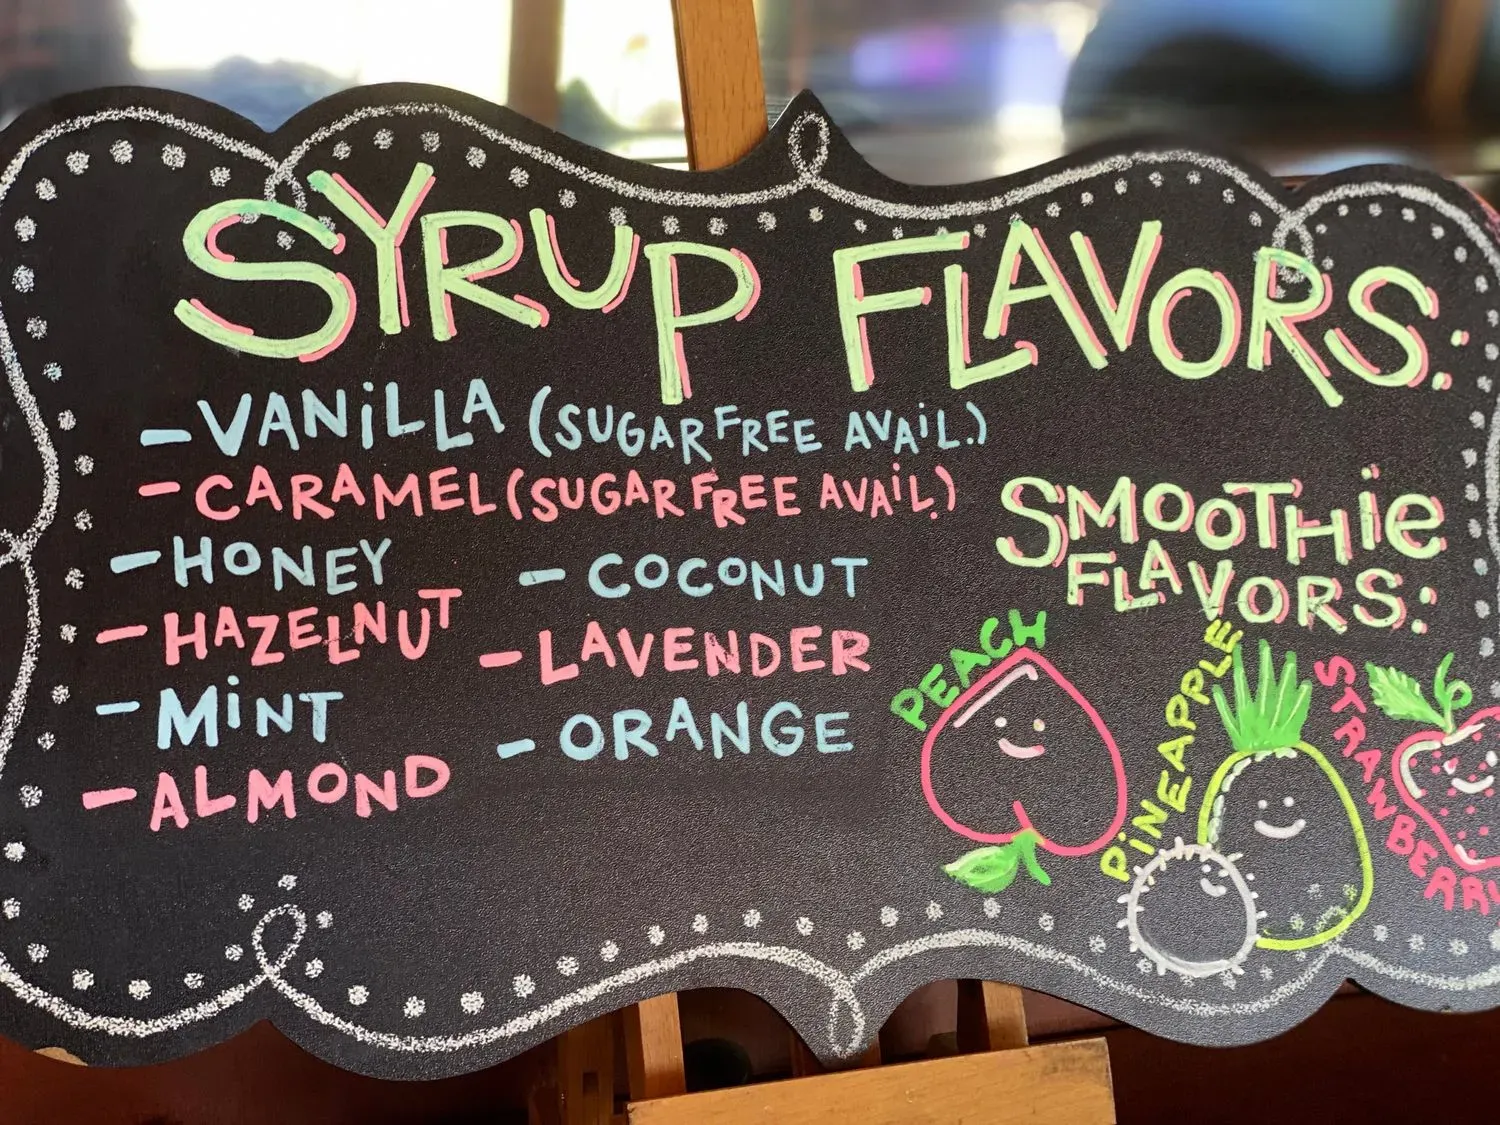 SYRUP FLAVORS:
- VANILLA (SUGAR FREE AVAIL.)
- CARAMEL (SUGAR FREE AVAIL.)
- HONEY
- HAZELNUT
- MINT
- ALMOND
- COCONUT
- LAVENDER
- ORANGE
SMOOTHiE
FLAVORS:
PEACH
PiNEAPPLE
STRAWBERRY